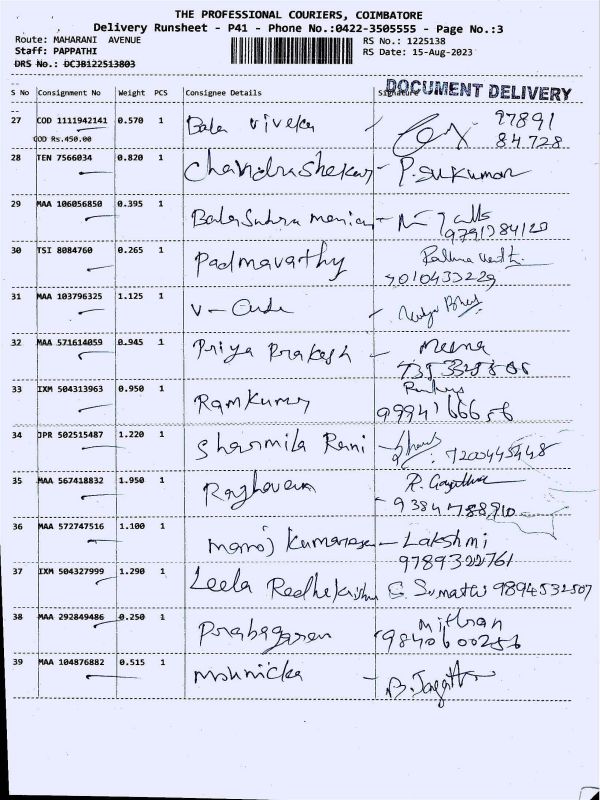 THE PROFESSIONAL COURIERS, COIMBATORE
Delivery Runsheet - P41 - Phone No.:0422-3505555 - Page No.:3
Route: MAHARANI AVENUE
RS No.: 1225138
Staff: PAPPATHI
RS Date: 15-Aug-2023
DRS No.: DCJB122513803
DOCUMENT DELIVERY
S No Consignment No Weight PCS Consignee Details Signature
27 COD 1111942141 0.570 1 Bala Viveka 97891
COD Rs.450.00 84728
28 TEN 7566034 0.820 1 Chandrashekar - P. Sukumar
29 MAA 106056850 0.395 1 Balasubramanian -
9791384120
30 TSI 8084760 0.265 1 Padmavathy
7010433229
31 MAA 103796325 1.125 1 V -
32 MAA 571614059 0.945 1 Priya Prakash - Meena
33 IXM 504313963 0.950 1 Ramkumar
9994166656
34 JPR 502515487 1.220 1 Sharmila Rani 7200445448
35 MAA 567418832 1.950 1 Raghavan R. Gayathri
- 9384788910
36 MAA 572747516 1.100 1 Manoj Kumaresan - Lakshmi
9789322761
37 IXM 504327999 1.290 1 Leela Radhakrishna G. Sumathi 9894532507
38 MAA 292849486 0.250 1 Prabagaran Mithran
9840600256
39 MAA 104876882 0.515 1 Mohnicka - B.